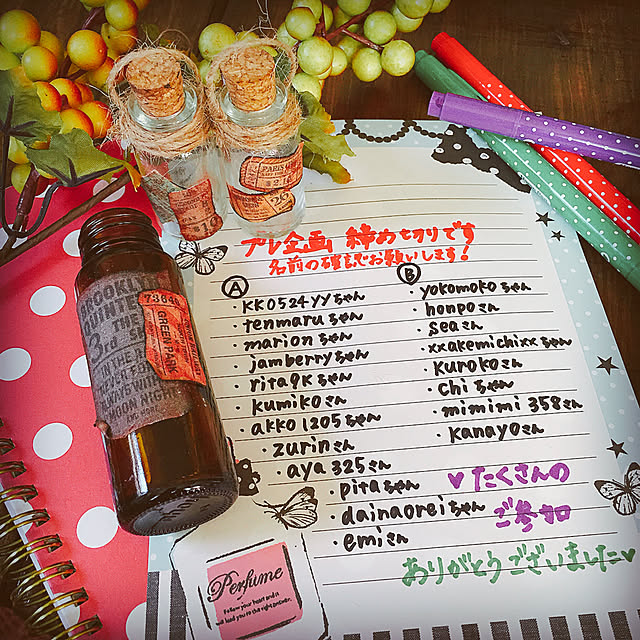 プレ企画 締め切りです
名前の確認お願いします!
A
・KK0524yyちゃん
・tenmaruちゃん
・marionちゃん
・jamberryちゃん
・rita9kちゃん
・kumikoさん
・akko1205ちゃん
・zurinさん
・aya325さん
・pitaちゃん
・dainaoreiちゃん
・emiさん
B
・yokomokoちゃん
・honpoさん
・seaさん
・xxakemichixxちゃん
・kurokoさん
・chiちゃん
・mimimi358さん
・kanayoさん
♥たくさんの
ご参加
ありがとうございました♥
Perfume
Follow your heart and it
will lead you to the right answer.
BROOKLY
QUINTE
3.d THE
73646
GREEN PARK
MOON NIGHT
PARIS
$29
$10